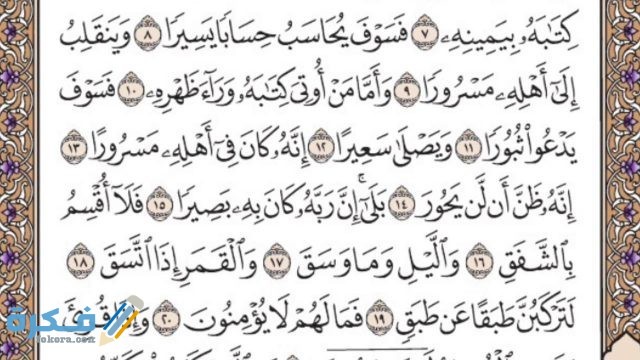 كِتَٰبَهُۥ بِيَمِينِهِۦ ٧ فَسَوْفَ يُحَاسَبُ حِسَابًا يَسِيرًا ٨ وَيَنقَلِبُ
إِلَىٰٓ أَهْلِهِۦ مَسْرُورًا ٩ وَأَمَّا مَنْ أُوتِىَ كِتَٰبَهُۥ وَرَآءَ ظَهْرِهِۦ ١٠ فَسَوْفَ
يَدْعُوا۟ ثُبُورًا ١١ وَيَصْلَىٰ سَعِيرًا ١٢ إِنَّهُۥ كَانَ فِىٓ أَهْلِهِۦ مَسْرُورًا ١٣
إِنَّهُۥ ظَنَّ أَن لَّن يَحُورَ ١٤ بَلَىٰٓ إِنَّ رَبَّهُۥ كَانَ بِهِۦ بَصِيرًا ١٥ فَلَآ أُقْسِمُ
بِٱلشَّفَقِ ١٦ وَٱلَّيْلِ وَمَا وَسَقَ ١٧ وَٱلْقَمَرِ إِذَا ٱتَّسَقَ ١٨
لَتَرْكَبُنَّ طَبَقًا عَن طَبَقٍ ١٩ فَمَا لَهُمْ لَا يُؤْمِنُونَ ٢٠ وَإِذَا قُرِئَ
فكرة
fokora.com